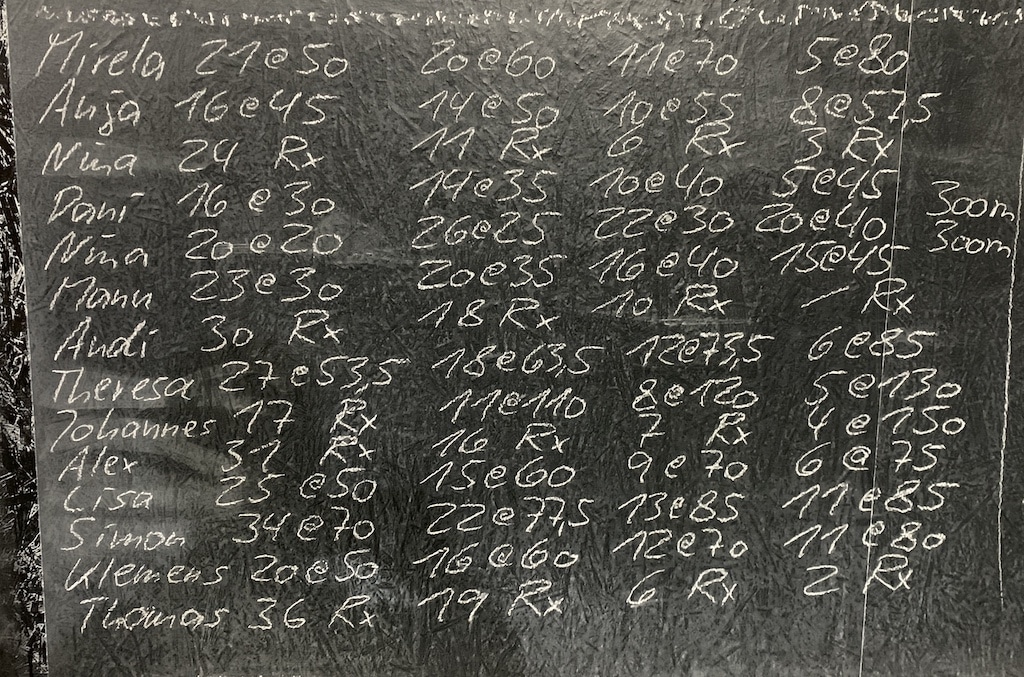 Mirela 21@50 20@60 11@70 5@80
Anja 16@45 14@50 10@55 8@57,5
Nina 24 Rx 11 Rx 6 Rx 3 Rx
Dani 16@30 14@35 10@40 5@45 300m
Nina 20@20 26@25 22@30 20@40 300m
Manu 23@30 20@35 16@40 15@45
Andi 30 Rx 18 Rx 10 Rx - Rx
Theresa 27@53,5 18@63,5 12@73,5 6@85
Johannes 17 Rx 11@110 8@120 5@130
Alex 31 Rx 16 Rx 7 Rx 4@150
Lisa 25@50 15@60 9@70 6@75
Simon 34@70 22@77,5 13@85 11@85
Klemens 20@50 16@60 12@70 11@80
Thomas 36 Rx 19 Rx 6 Rx 2 Rx